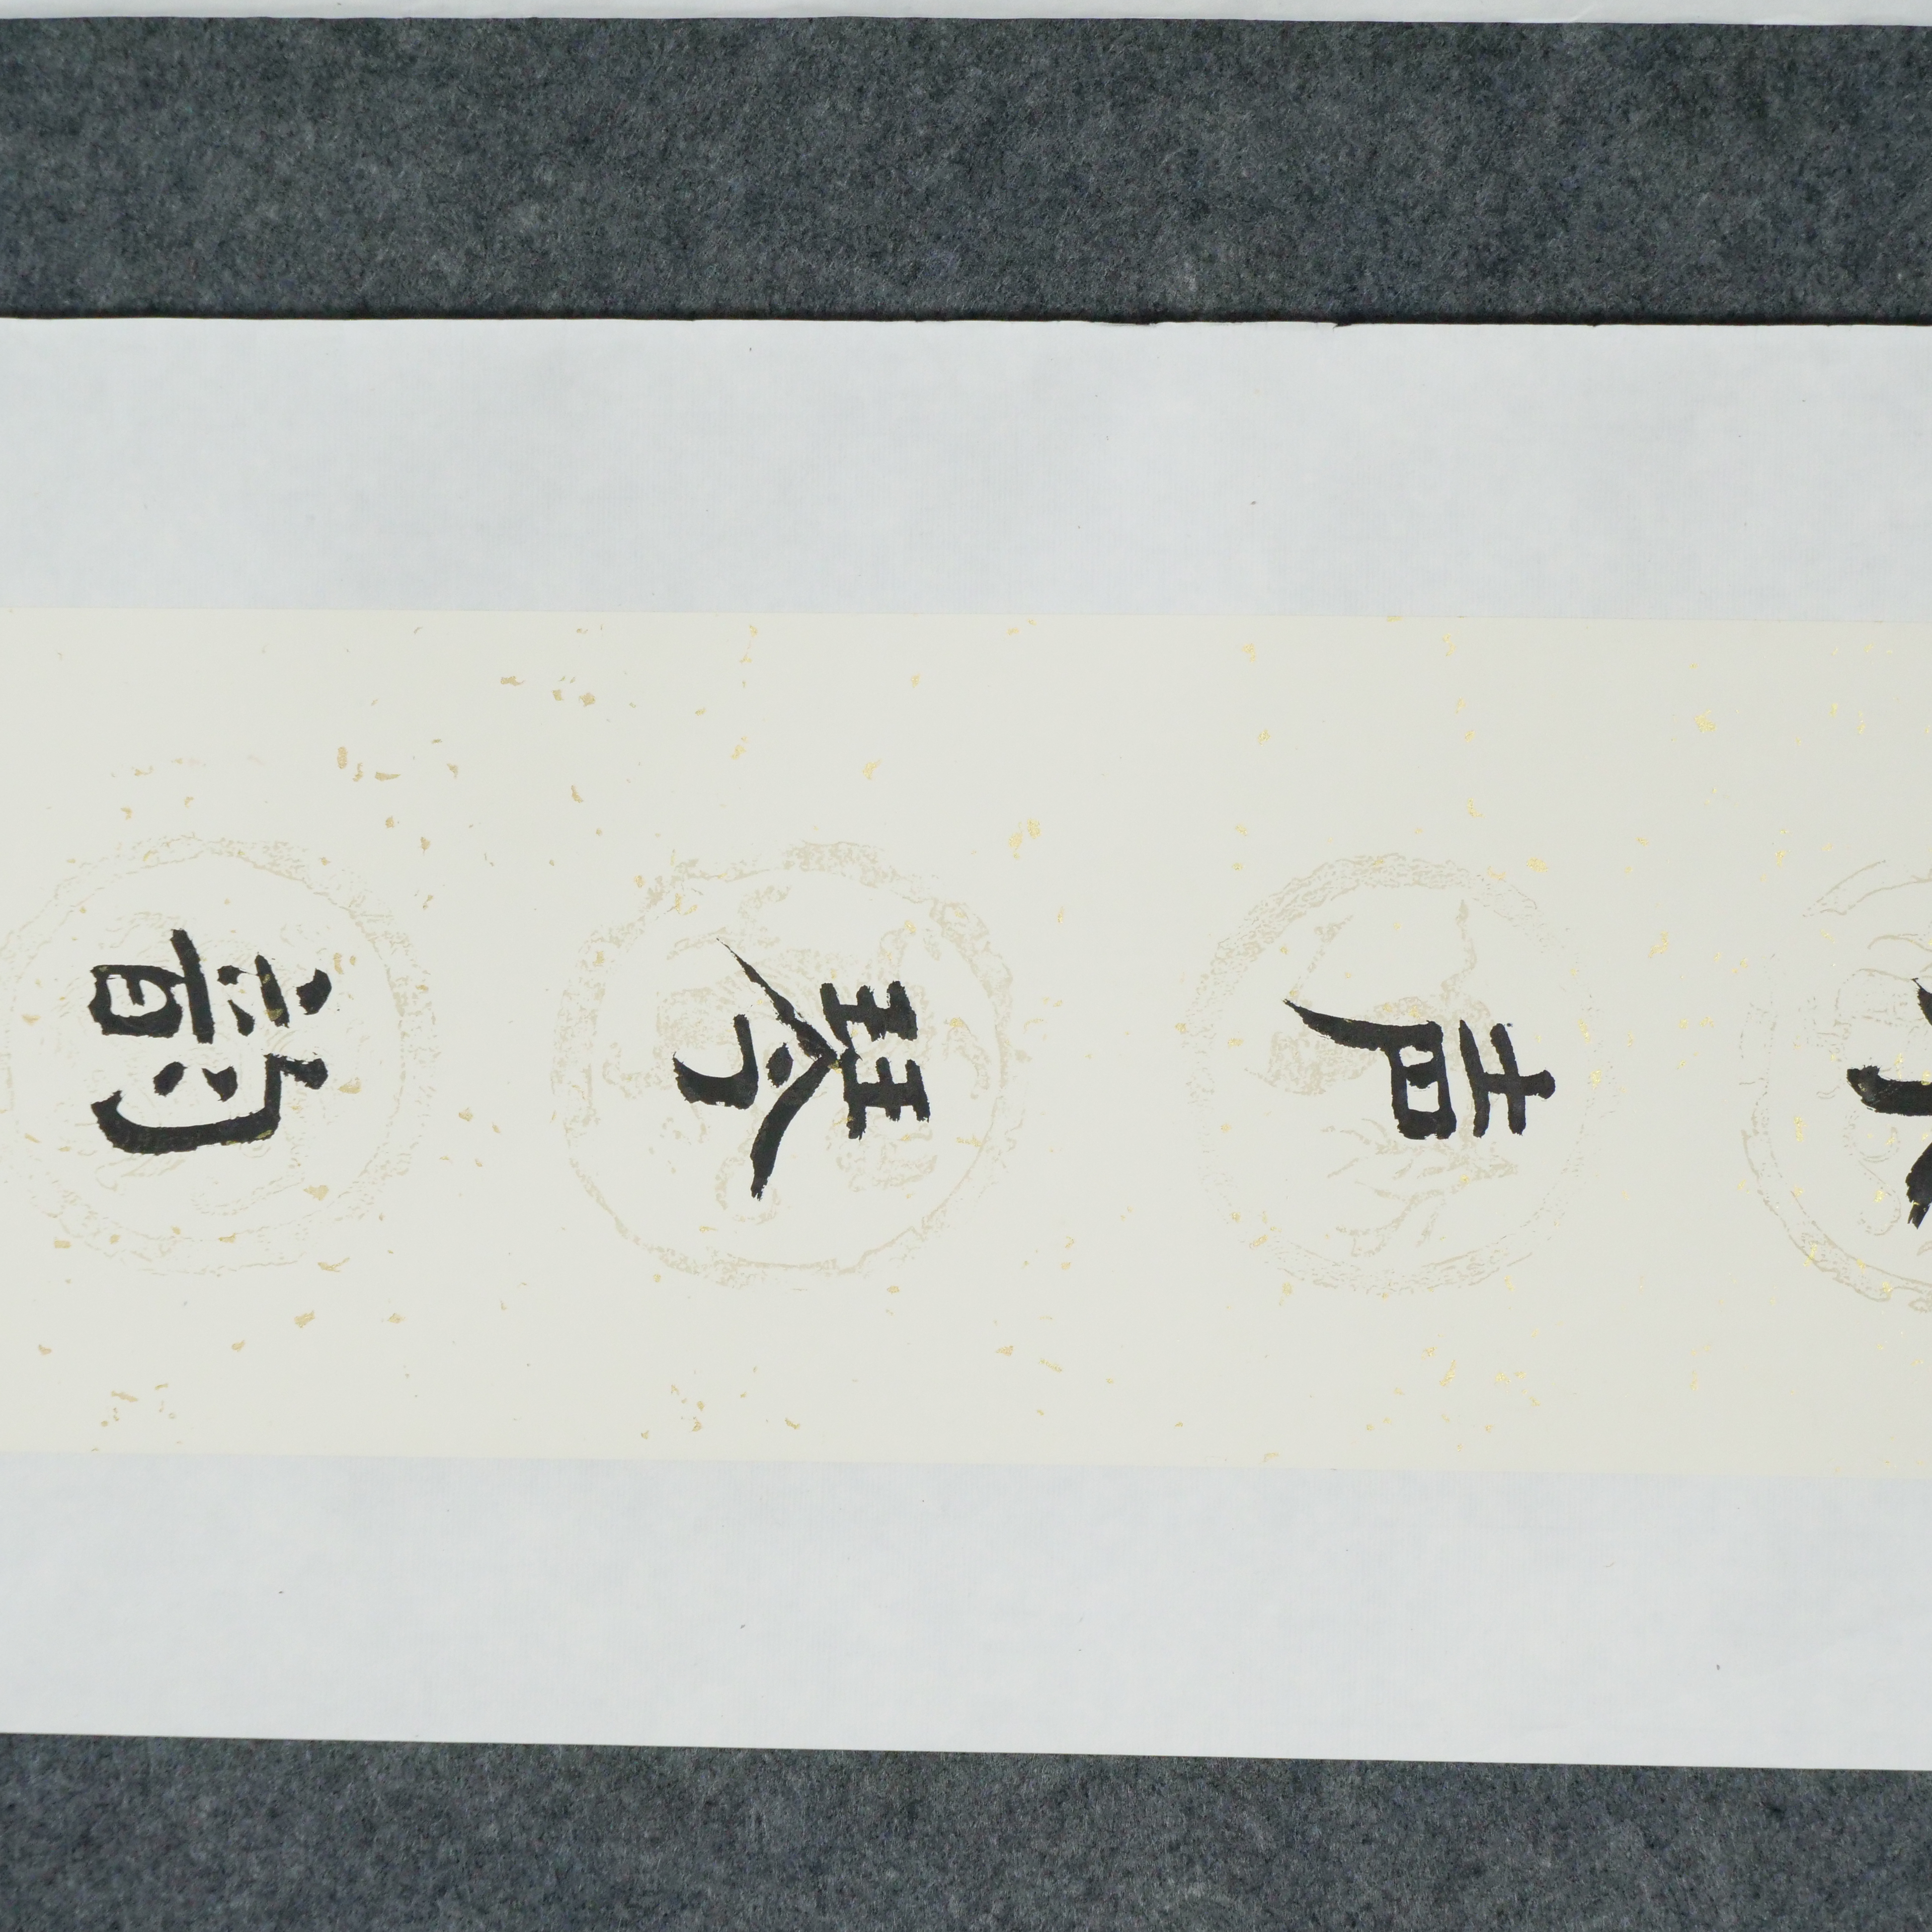 声琴韵